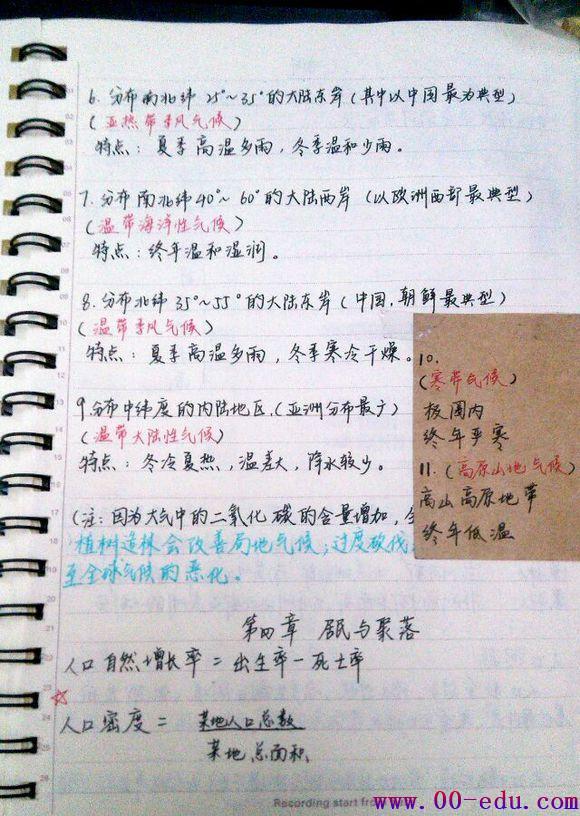 6. 分布南北纬25°~35°的大陆东岸(其中以中国最为典型)
(亚热带季风气候)
特点:夏季高温多雨,冬季温和少雨。
7. 分布南北纬40°~60°的大陆西岸(以欧洲西部最典型)
(温带海洋性气候)
特点:终年温和湿润。
8. 分布北纬35°~55°的大陆东岸(中国,朝鲜最典型)
(温带季风气候)
特点:夏季高温多雨,冬季寒冷干燥。
9. 分布中纬度的内陆地区,(亚洲分布最广)
(温带大陆性气候)
特点:冬冷夏热,温差大,降水较少。
10.
(寒带气候)
极圈内
终年严寒
11.(高原山地气候)
高山高原地带
终年低温
(注:因为大气中的二氧化碳的含量增加,全
植树造林会改善局地气候;过度砍伐
至全球气候的恶化。
第四章 居民与聚落
人口自然增长率=出生率-死亡率
☆
人口密度=某地人口总数
某地总面积
Recording start fro
www.00-edu.com